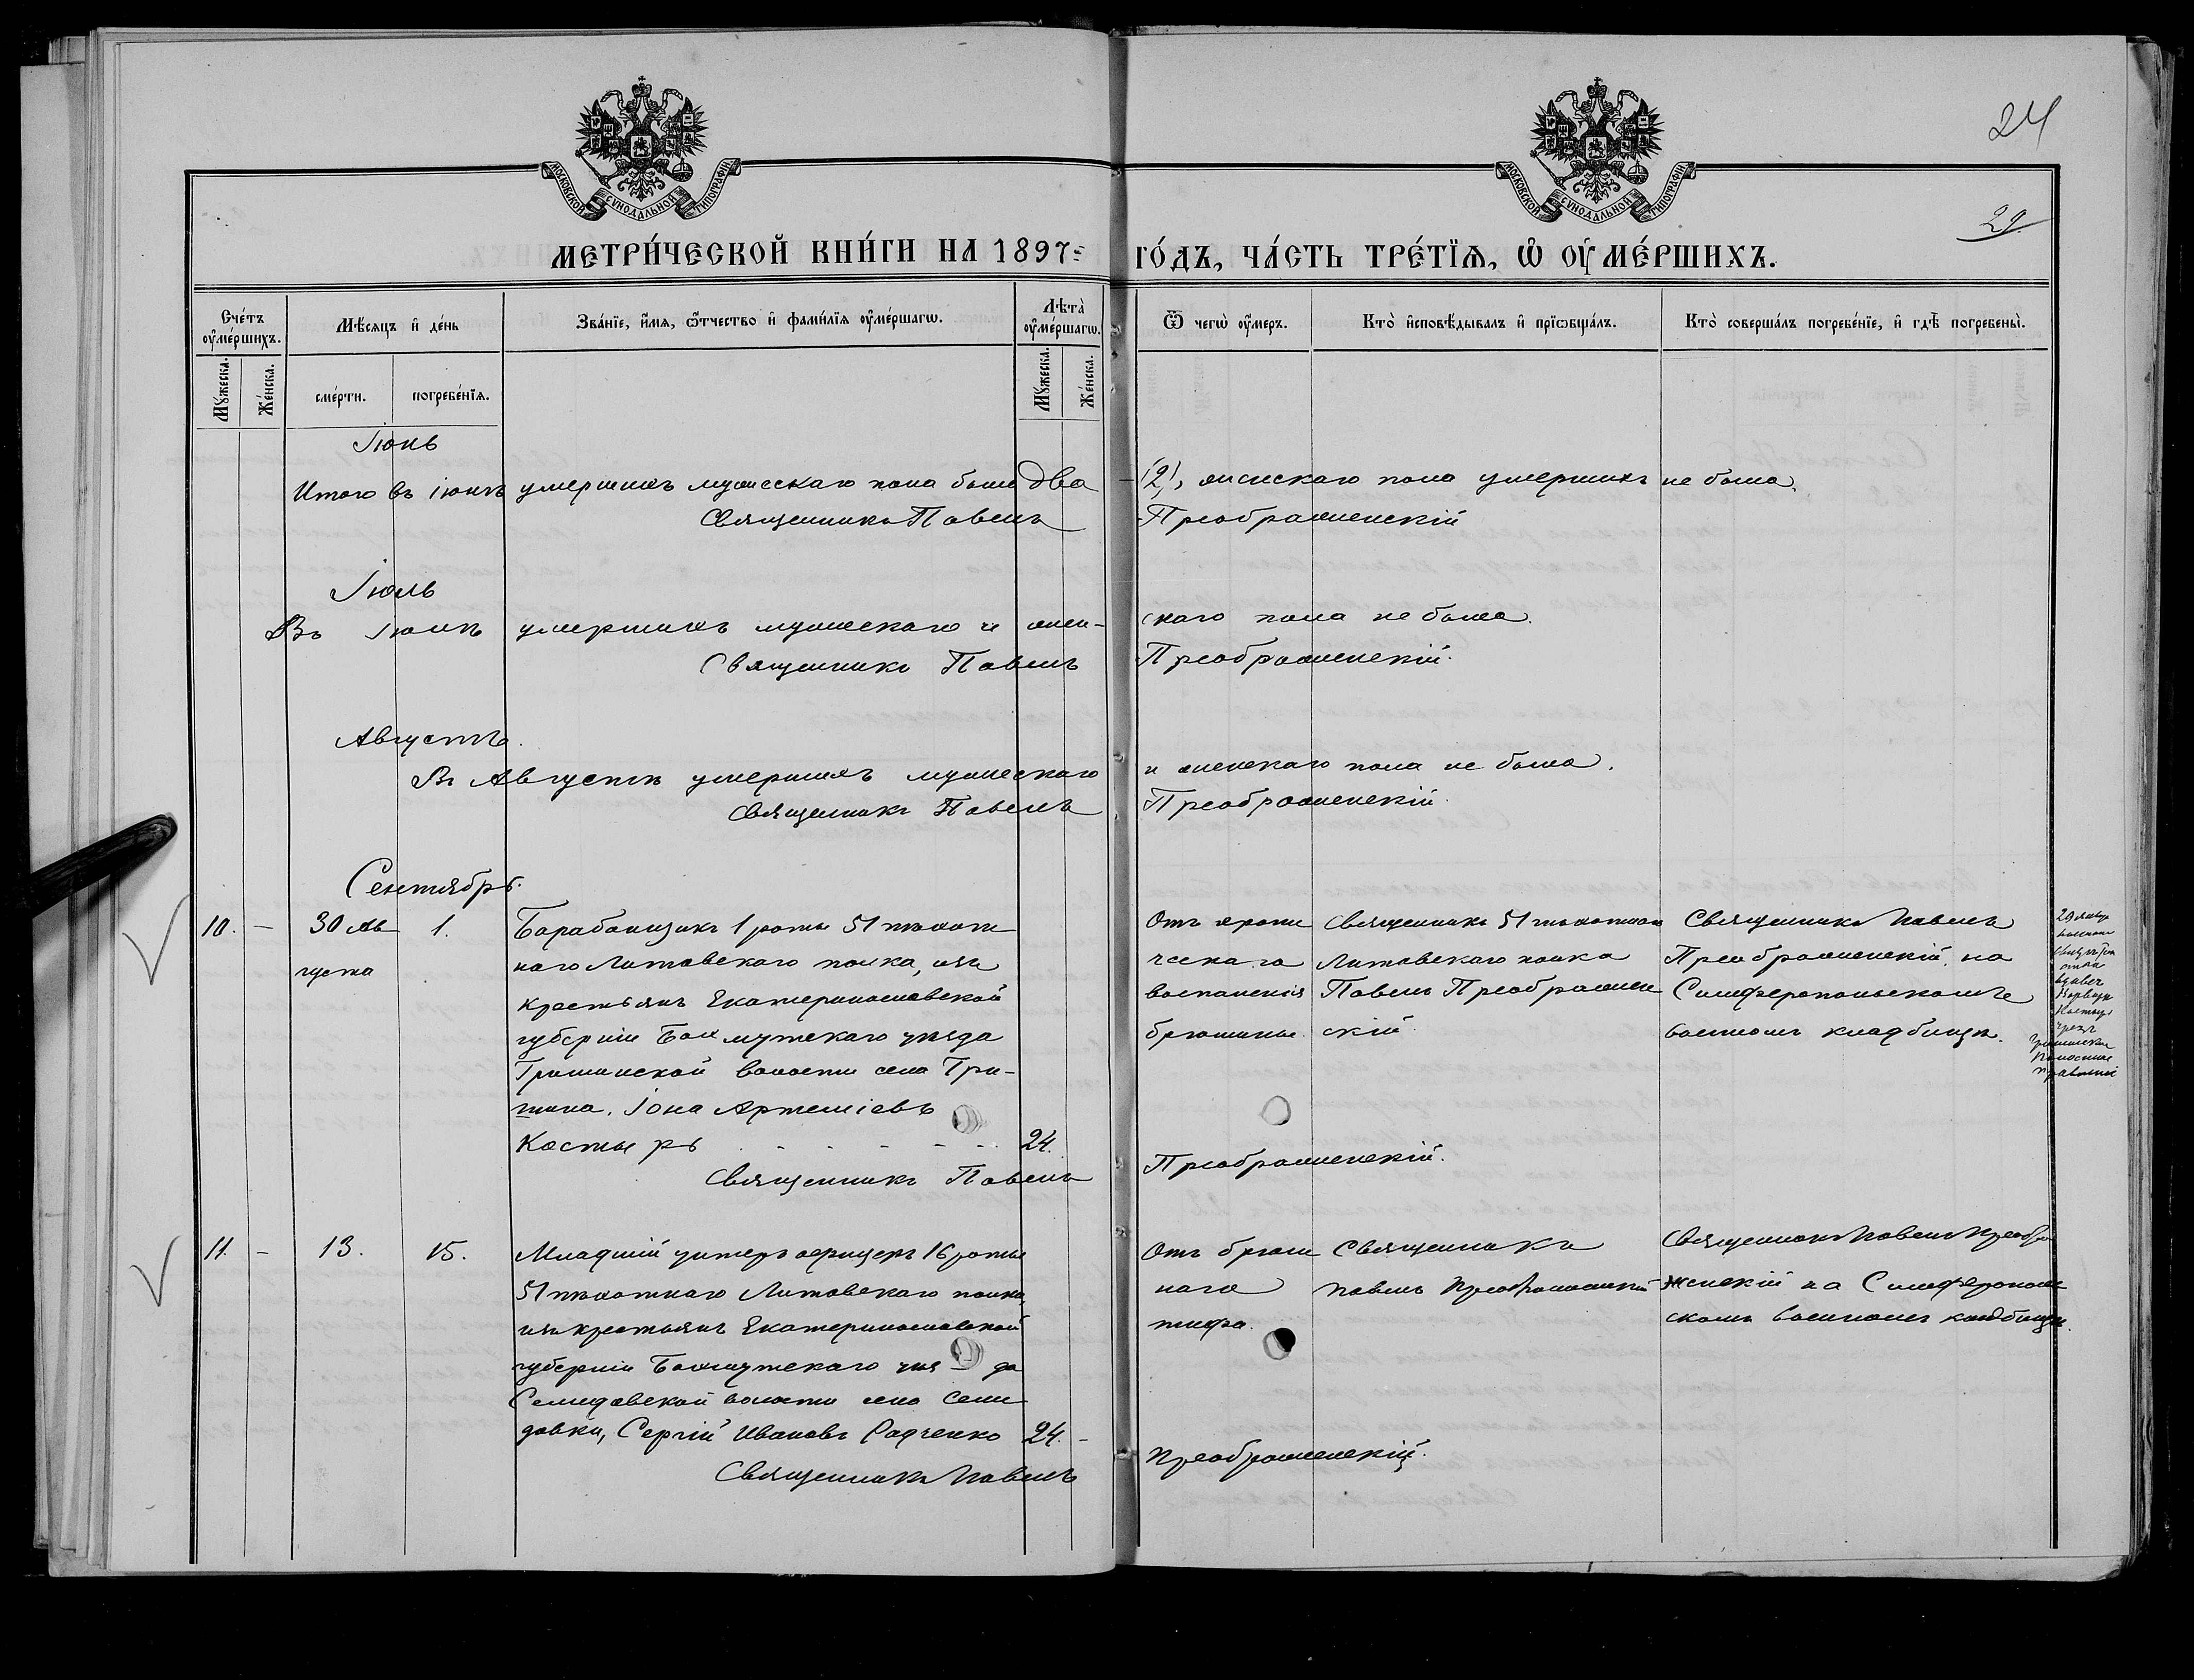 МОСКОВСКОЙ СѴНОДАЛЬНОЙ ТИПОГРАФІИ
МОСКОВСКОЙ СѴНОДАЛЬНОЙ ТИПОГРАФІИ
24
29
МЕТРИ́ЧЕСКОЙ КНИ́ГИ НА 1897 ГО́ДЪ, ЧА́СТЬ ТРЕ́ТЇѦ, Ѽ ОУ҆МЕ́РШИХЪ.
Сче́тъ оу҆ме́ршихъ.
Мꙋ́жеска.
Же́нска.
Мѣ́сяцъ и҆ де́нь
сме́рти.
погребе́нїѧ.
Зва́нїе, и҆́мѧ, ѻ҆́тчество и҆ фами́лїѧ оу҆ме́ршагѡ.
Лѣта̀ оу҆ме́ршагѡ.
Мꙋ́жеска.
Же́нска.
Ѿ чегѡ̀ оу҆́меръ.
Кто̀ и҆сповѣ́дывалъ и҆ прїѡбща́лъ.
Кто̀ соверша́лъ погребе́нїе, и҆ гдѣ̀ погребены̀.
Іюнь
Итого въ іюнѣ умершихъ мужескаго пола было два (2), женскаго пола умершихъ не было.
Священникъ Павелъ Преображенскій
Іюль
Въ Іюлѣ умершихъ мужескаго и жен-скаго пола не было.
Священникъ Павелъ Преображенскій.
Августъ.
Въ Августѣ умершихъ мужескаго и женскаго пола не было.
Священникъ Павелъ Преображенскій.
Сентябрь.
10. – 30 Ав
густа
1.
Барабанщикъ 1 роты 51 пѣхот
наго Литовскаго полка, изъ
крестьянъ Екатеринославской
губерніи Бахмутскаго уѣзда
Гришинской волости села Гри-
шина. Іона Артеміевъ
Костырь - - - - - 24.
Отъ хрони
ческаго
воспаленія
брюшины.
Священникъ 51 пѣхотнаго
Литовскаго полка
Павелъ Преображен
скій.
Священникъ Павелъ
Преображенскій, на
Симферопольскомъ
военномъ кладбищѣ.
Священникъ Павелъ Преображенскій.
11. – 13. 15.
Младшій унтеръ офицеръ 16 роты
51 пѣхотнаго Литовскаго полка,
изъ крестьянъ Екатеринославской
губерніи Бахмутскаго уѣзда
Селидовской волости села Сели
довки, Сергій Ивановъ Радченко 24. -
Отъ брюш
наго
тифа.
Священникъ
Павелъ Преображенскій
Священникъ Павелъ Преобра
женскій на Симферополь
скомъ военномъ кладбищѣ.
Священникъ Павелъ Преображенскій.